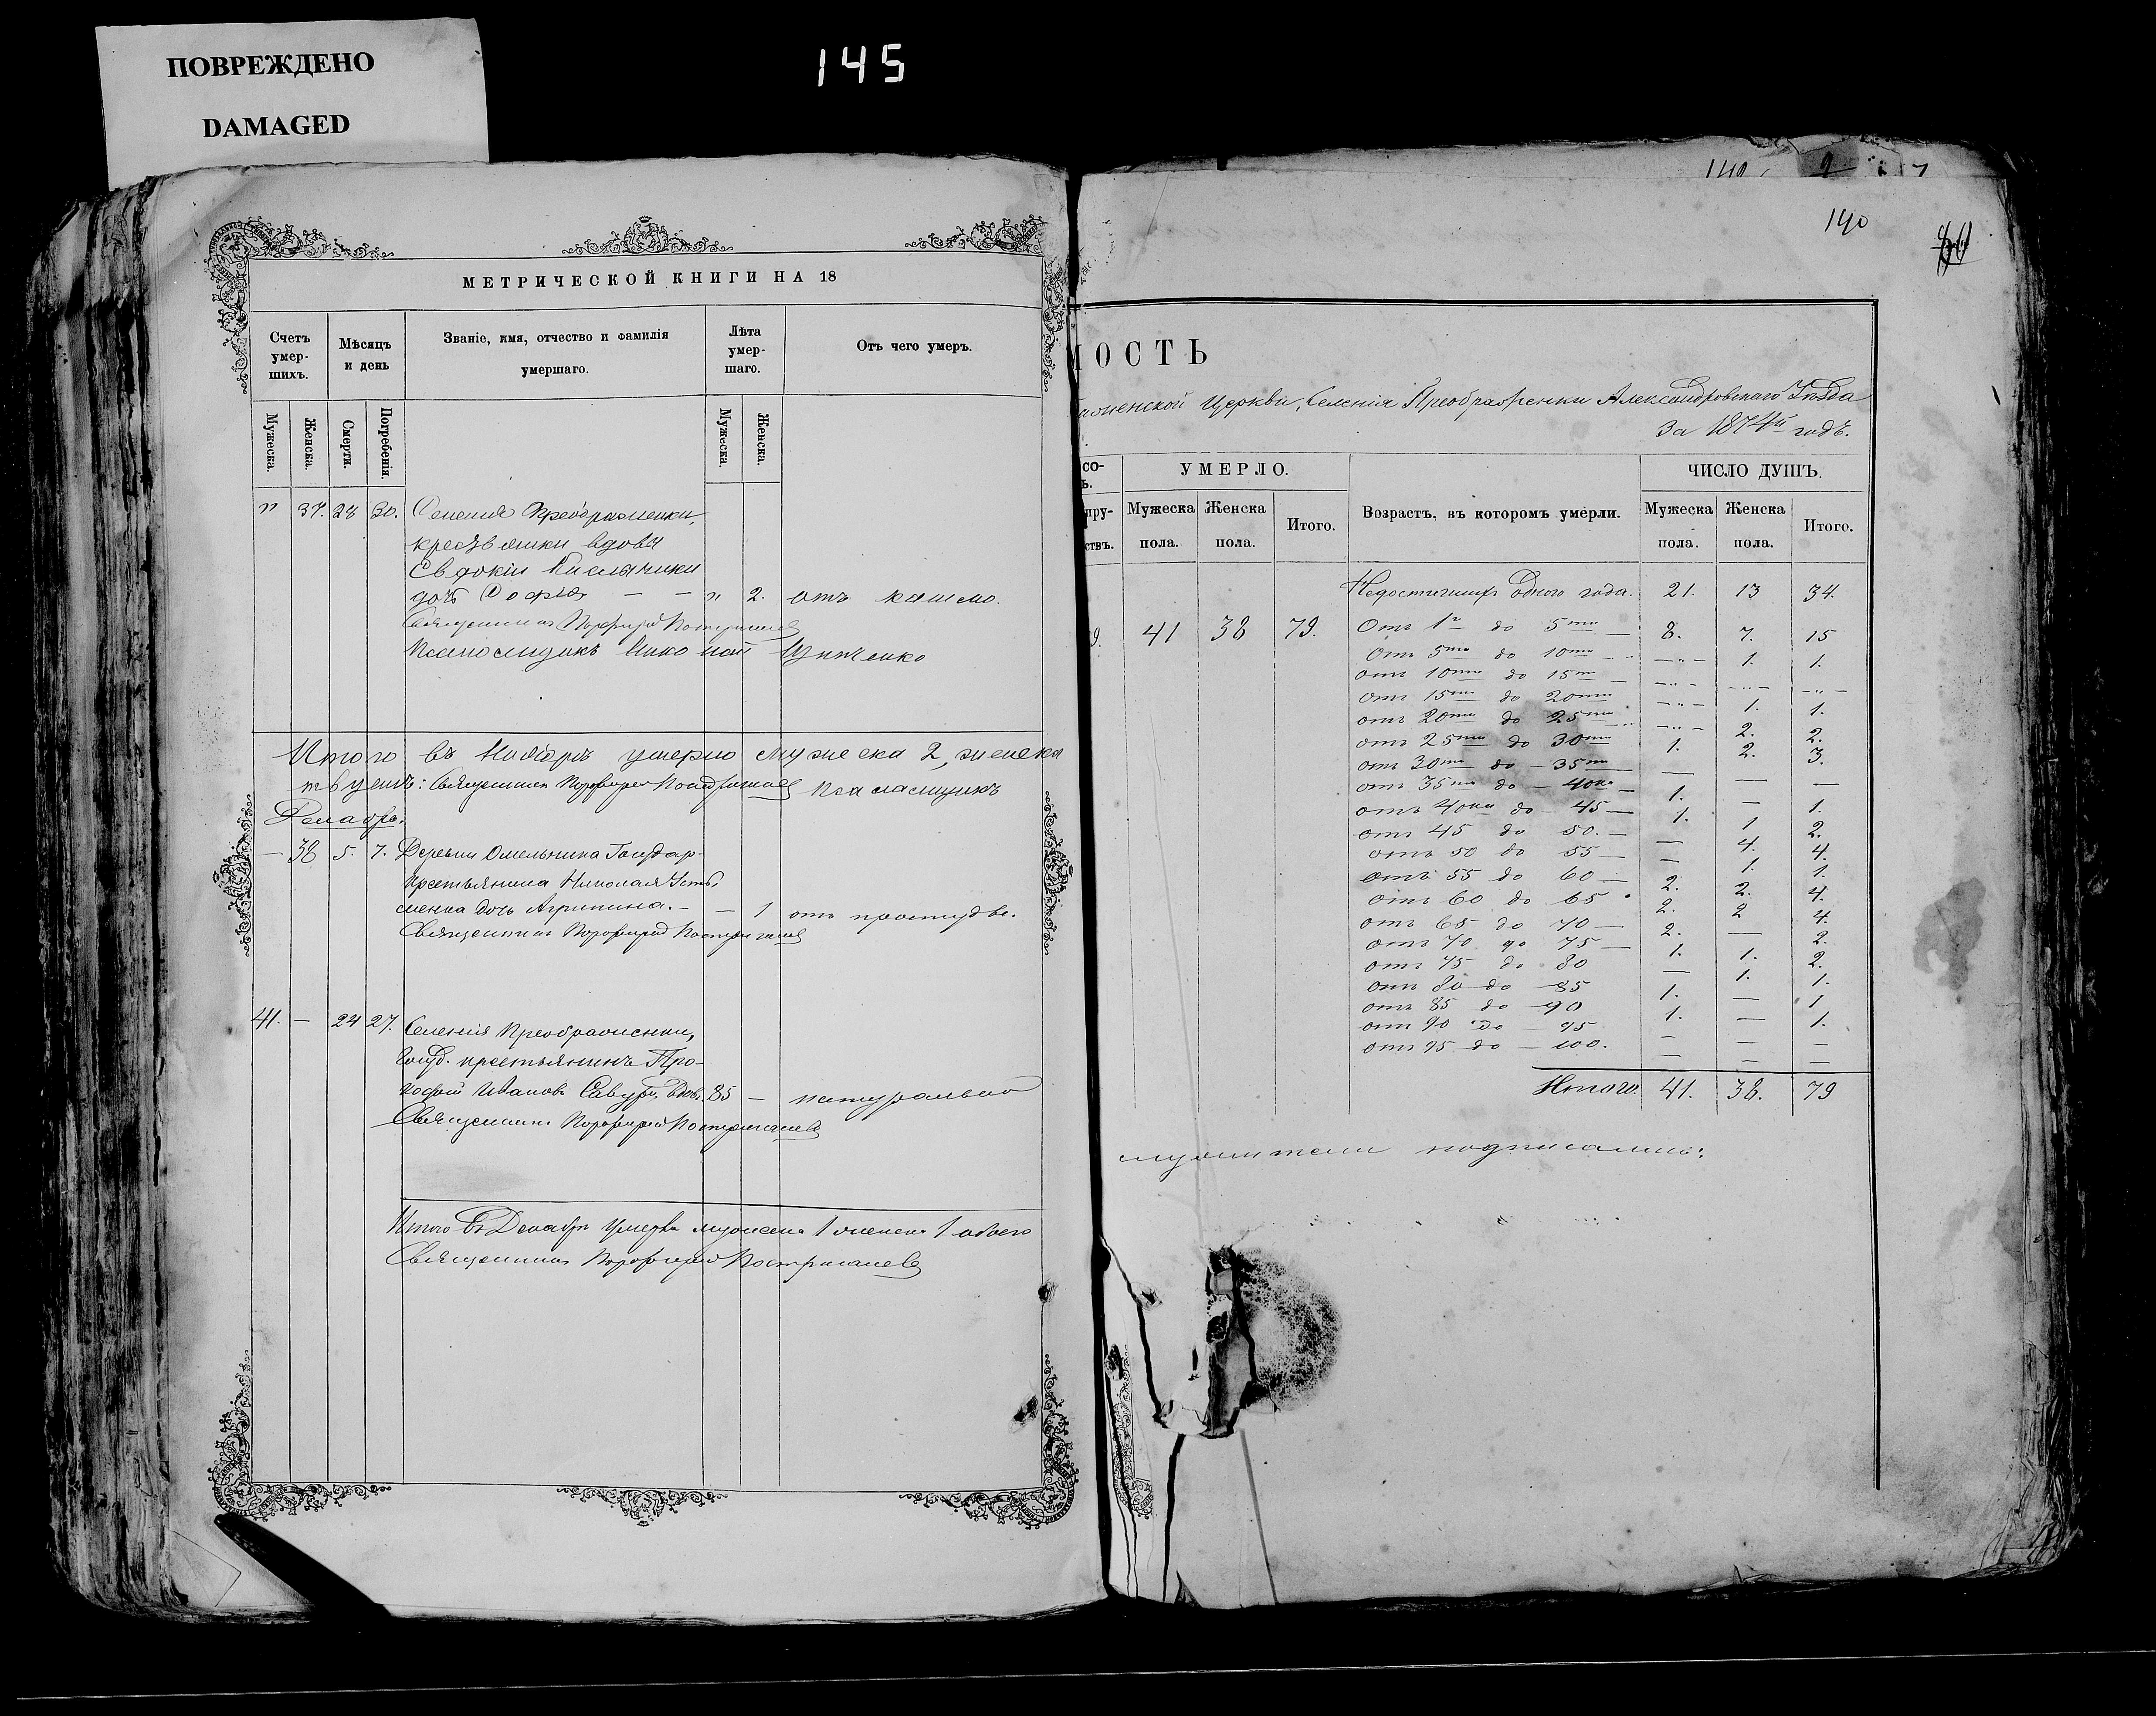 ПОВРЕЖДЕНО
DAMAGED
145
МЕТРИЧЕСКОЙ КНИГИ НА 18
Счетъ умер- шихъ.
Мѣсяцъ и день
Званіе, имя, отчество и фамилія умершаго.
Лѣта умер- шаго.
Отъ чего умеръ.
Мужеска. Женска. Смерти. Погребенія. Мужеска. Женска.
" 37. 28 30. Селенія Преображенки,
крестьянки вдовы
Евдокіи
дочь Софія — — " 2. отъ кашлю.
Священникъ Порфирій
Псаломщикъ
Итого въ Ноябрѣ умерло мужеска 2, женска
Священникъ Порфирій Псаломщикъ
Декабрь.
— 38 5. 7. Деревни Омельника Государ.
крестьянина Николая Усти-
менка дочь Агрипина. — — 1 отъ простуды.
Священникъ Порфирій
41. — 24 27. Селенія Преображенки,
Госуд. крестьянинъ Про-
кофій Ивановъ 85 — натурально
Священникъ Порфирій
Итого въ Декабрѣ умерло мужеска 1 женска 1 обоего
Священникъ Порфирій
140
140
МОСТЬ
Церкви, Селенія Преображенки Александровскаго Уѣзда
За 1874й годъ.
со-
ъ.
пру-
ствъ.
УМЕРЛО.
Мужеска пола. Женска пола. Итого.
Возрастъ, въ которомъ умерли.
ЧИСЛО ДУШЪ.
Мужеска пола. Женска пола. Итого.
Недостигшихъ одного года. 21. 13 34.
9. 41 38 79.
Отъ 1го до 5ти — 8. 7. 15
Отъ 5ти до 10ти — " — 1. 1.
отъ 10ти до 15ти — — " — — " — — " —
отъ 15ти до 20ти — " — 1. 1.
отъ 20ти до 25ти — " — 2. 2.
отъ 25ти до 30ти 1. 2. 3.
отъ 30ти до 35ти — — —
отъ 35ти до 40ка — 1. — 1.
отъ 40ка до 45 — 1. 1 2.
отъ 45 до 50. — — 4. 4.
отъ 50 до 55 — — 1. 1.
отъ 55 до 60 — 2. 2. 4.
отъ 60 до 65 2. 2 4.
отъ 65 до 70 — 2. — 2.
отъ 70 до 75 — 1. 1. 2.
отъ 75 до 80 — 1. 1.
отъ 80 до 85 1. — 1
отъ 85 до 90 1. — 1.
отъ 90 до 95 — — —
отъ 95 до 100. — — —
Итого. 41. 38. 79
подписались: